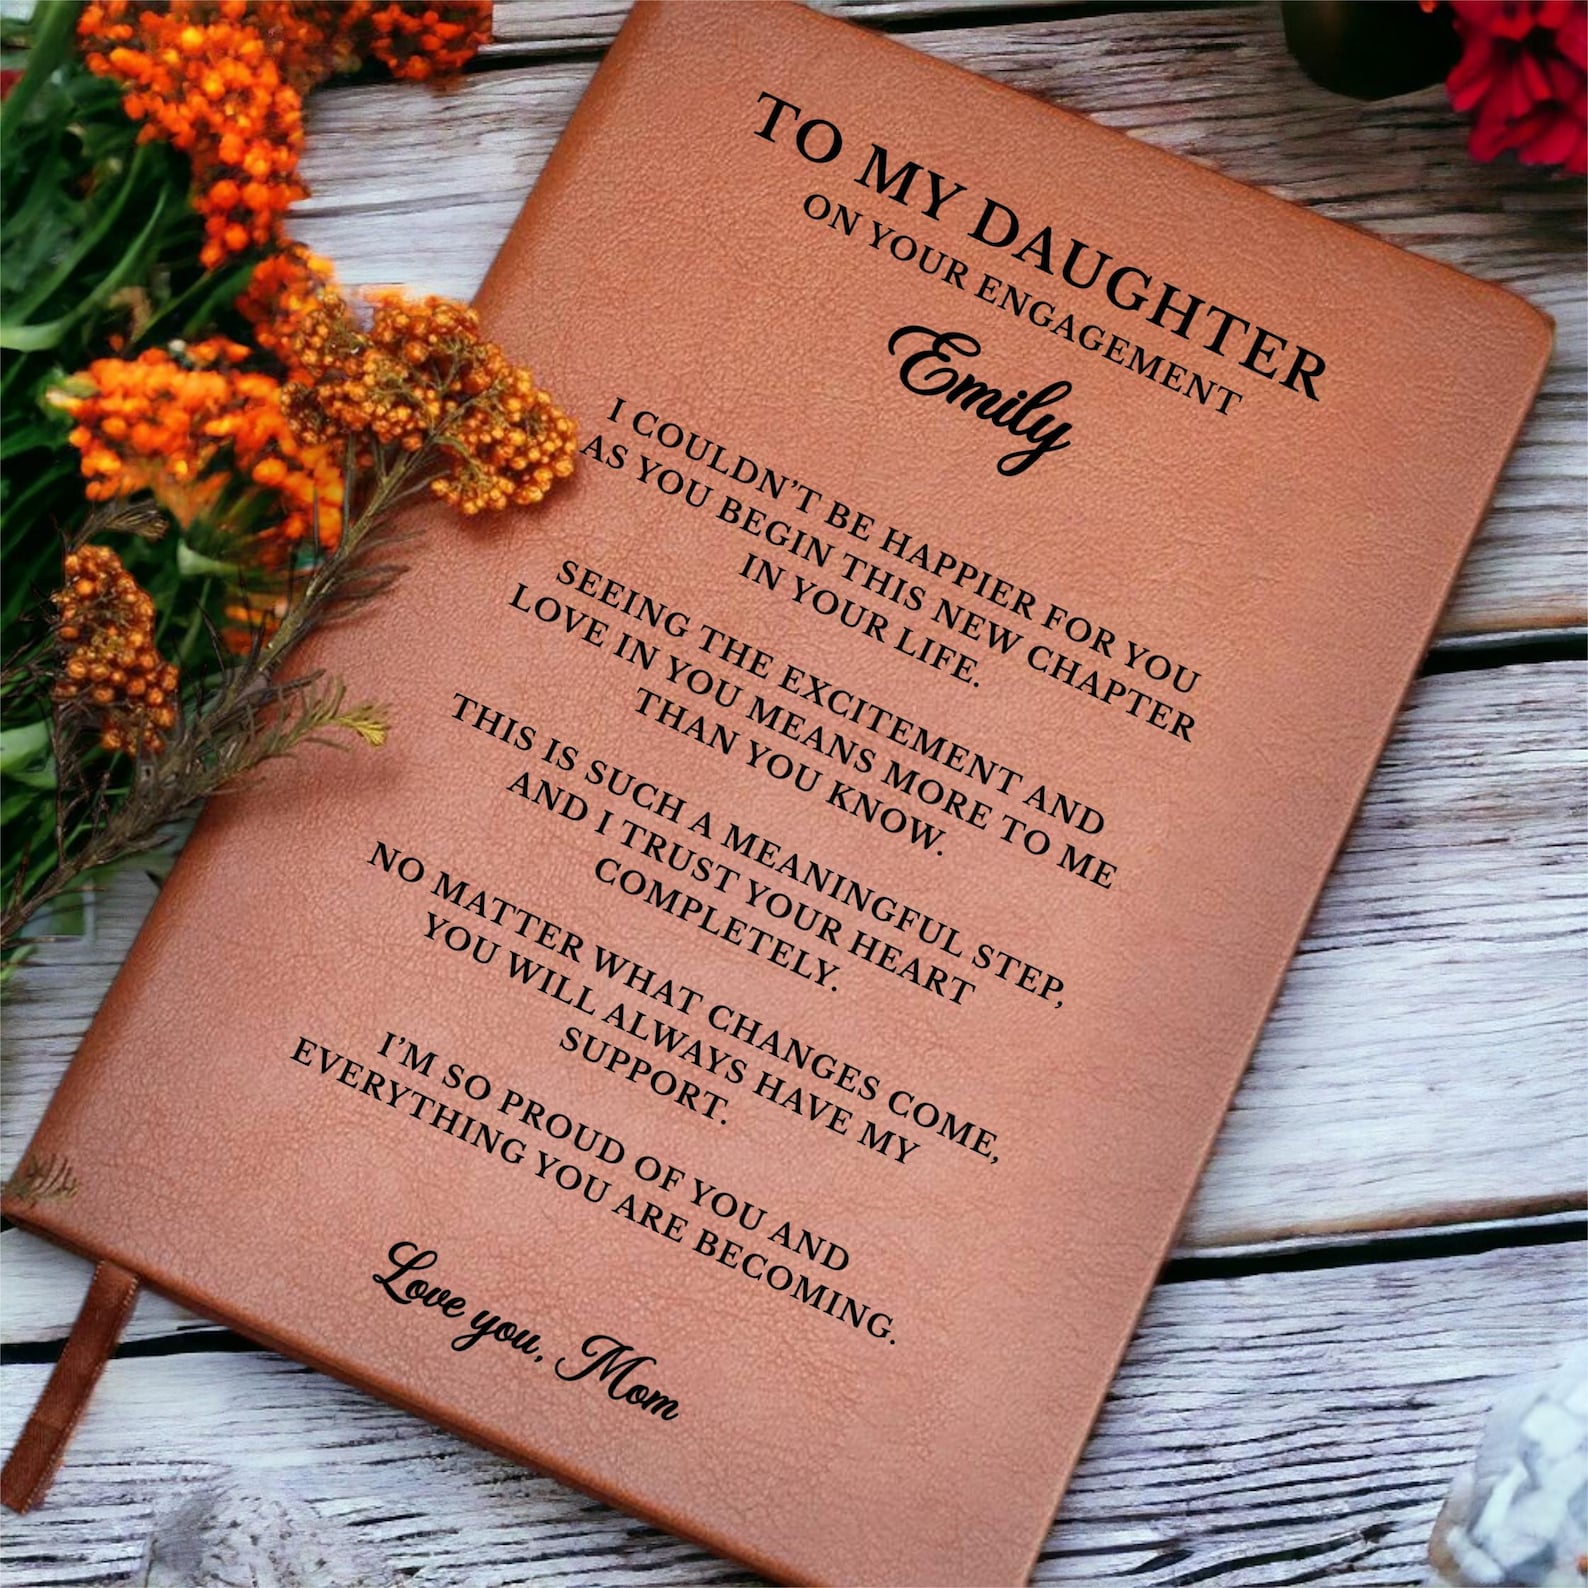 TO MY DAUGHTER
ON YOUR ENGAGEMENT
Emily
I COULDN’T BE HAPPIER FOR YOU
AS YOU BEGIN THIS NEW CHAPTER
IN YOUR LIFE.
SEEING THE EXCITEMENT AND
LOVE IN YOU MEANS MORE TO ME
THAN YOU KNOW.
THIS IS SUCH A MEANINGFUL STEP,
AND I TRUST YOUR HEART
COMPLETELY.
NO MATTER WHAT CHANGES COME,
YOU WILL ALWAYS HAVE MY
SUPPORT.
I’M SO PROUD OF YOU AND
EVERYTHING YOU ARE BECOMING.
Love you, Mom